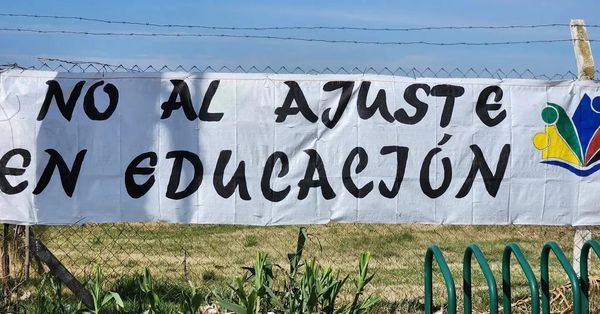 NO AL AJUSTE
EN EDUCACIÓN